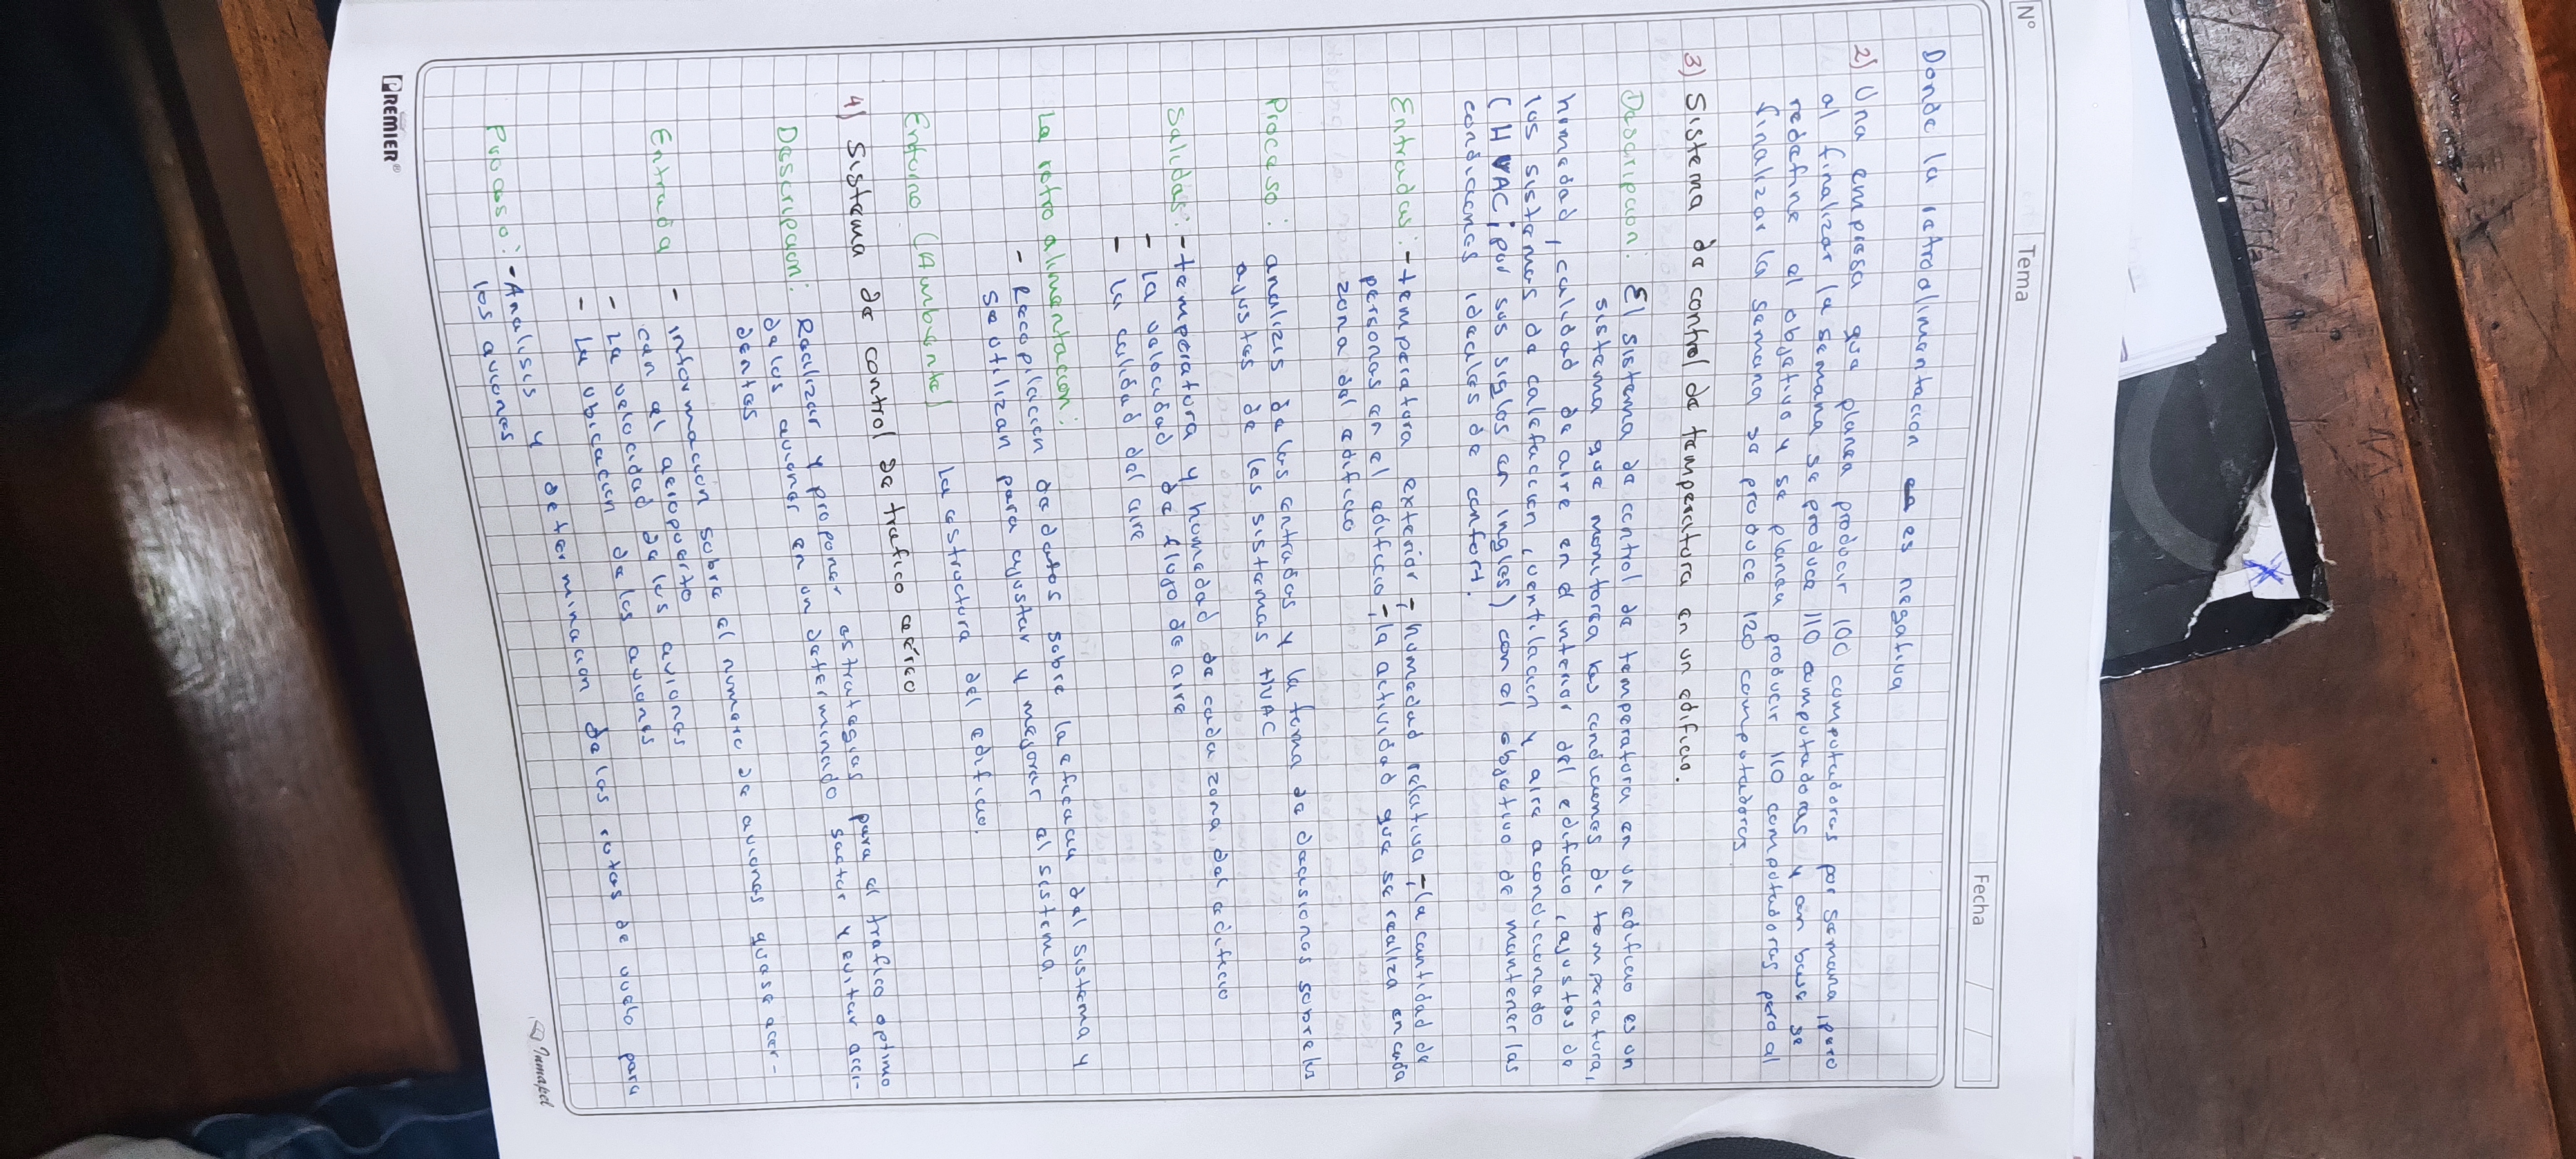 N° Tema Fecha
Donde la retroalimentación es negativa
2) Una empresa que planea producir 100 computadoras por semana, pero
al finalizar la semana se produce 110 computadoras y en base se
redefine el objetivo y se planea producir 110 computadoras pero al
finalizar la semana se produce 120 computadores
3) Sistema de control de temperatura en un edificio.
Descripcion: El sistema de control de temperatura en un edificio es un
sistema que monitorea las condiciones de temperatura,
humedad, calidad de aire en el interior del edificio, ajustes de
los sistemas de calefaccion, ventilacion y aire acondicionado
(HVAC; por sus siglas en ingles) con el objetivo de mantener las
condiciones ideales de confort.
Entradas: - temperatura exterior, - humedad relativa, - la cantidad de
personas en el edificio, - la actividad que se realiza en cada
zona del edificio
Proceso: analizis de las entradas y la toma de decisiones sobre los
ajustes de los sistemas HVAC
Salidas: - temperatura y humedad de cada zona del edificio
- la velocidad de flujo de aire
- la calidad del aire
La retro alimentacion:
- Recopilacion de datos sobre la eficacia del sistema y
se utilizan para ajustar y mejorar el sistema.
Entorno (Ambiente) La estructura del edificio.
4) Sistema de control de trafico aéreo
Descripcion: Realizar y proponer estrategias para el trafico optimo
de los aviones en un determinado sector y evitar acci-
dentes
Entrada - información sobre el numero de aviones que se acer-
can al aeropuerto
- La velocidad de los aviones
- La ubicación de los aviones
Proceso: - Analisis y determinacion de las rutas de vuelo para
los aviones
PREMIER®
Inmapel